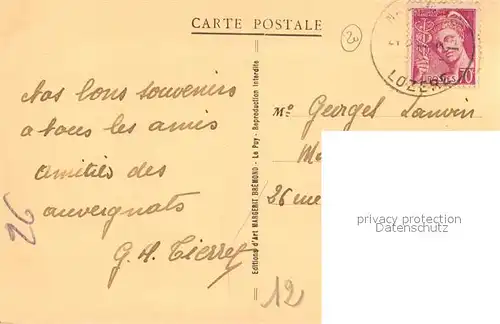 CARTE POSTALE
Nos bons souvenirs
a tous les amis
amitiés des
auvergnats
G. A. Tierret
26
Editions d'Art MARGERIT BRÉMOND - Le Puy - Reproduction Interdite
Mr Georges Lanvin
26 rue
LOZÈRE
70c
12
privacy protection
Datenschutz